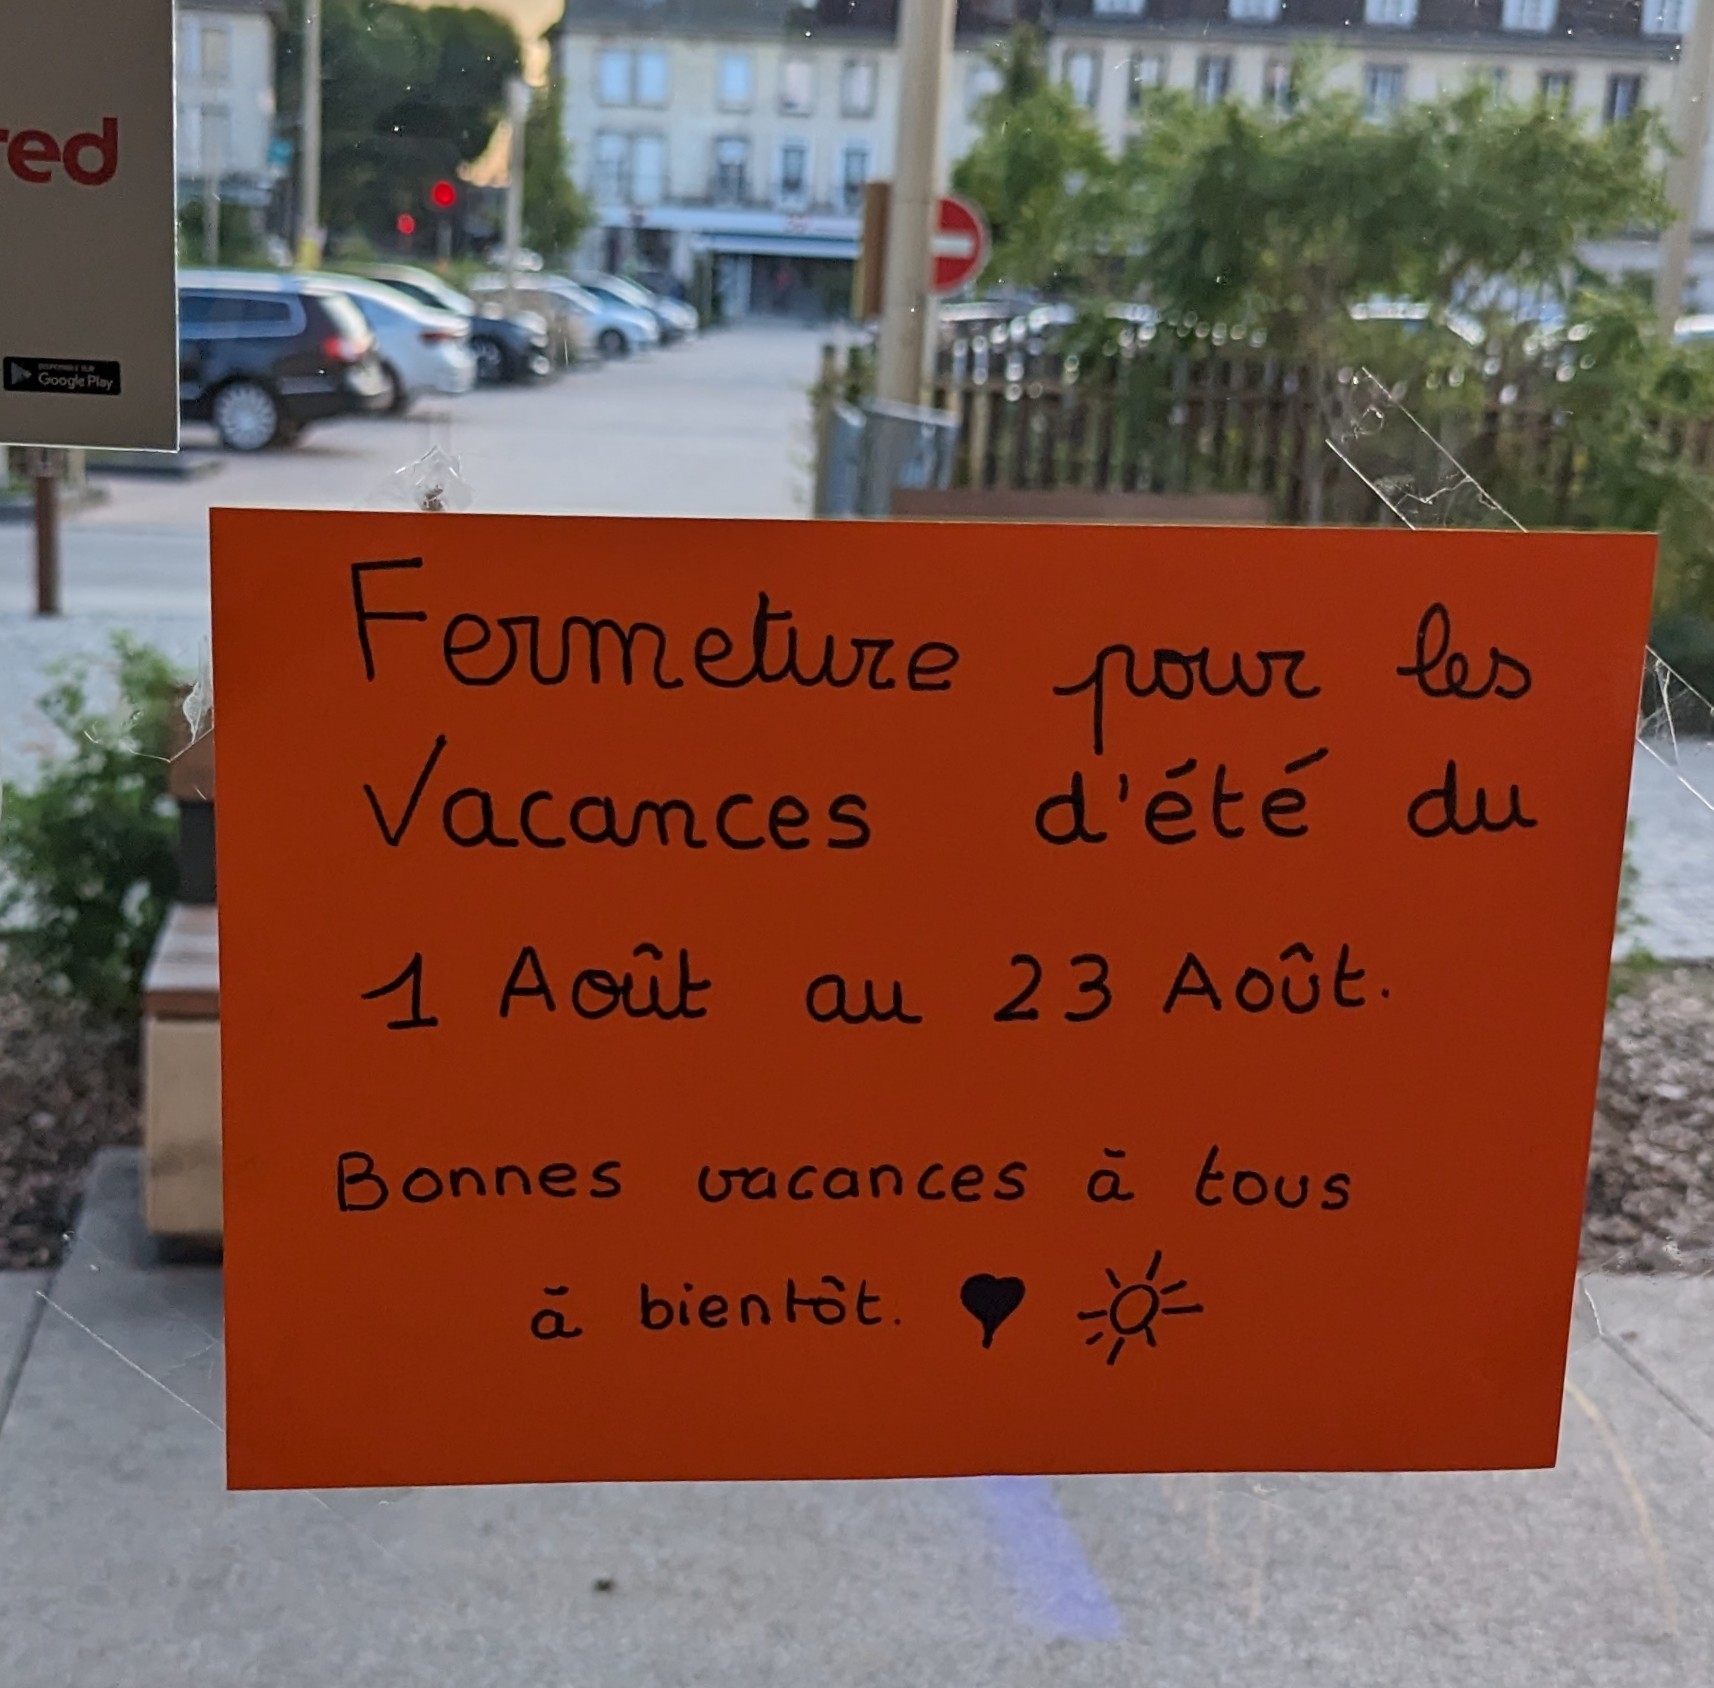 red
DISPONIBLE SUR
Google Play
Fermeture pour les
Vacances d'été du
1 Août au 23 Août.
Bonnes vacances à tous
à bientôt.